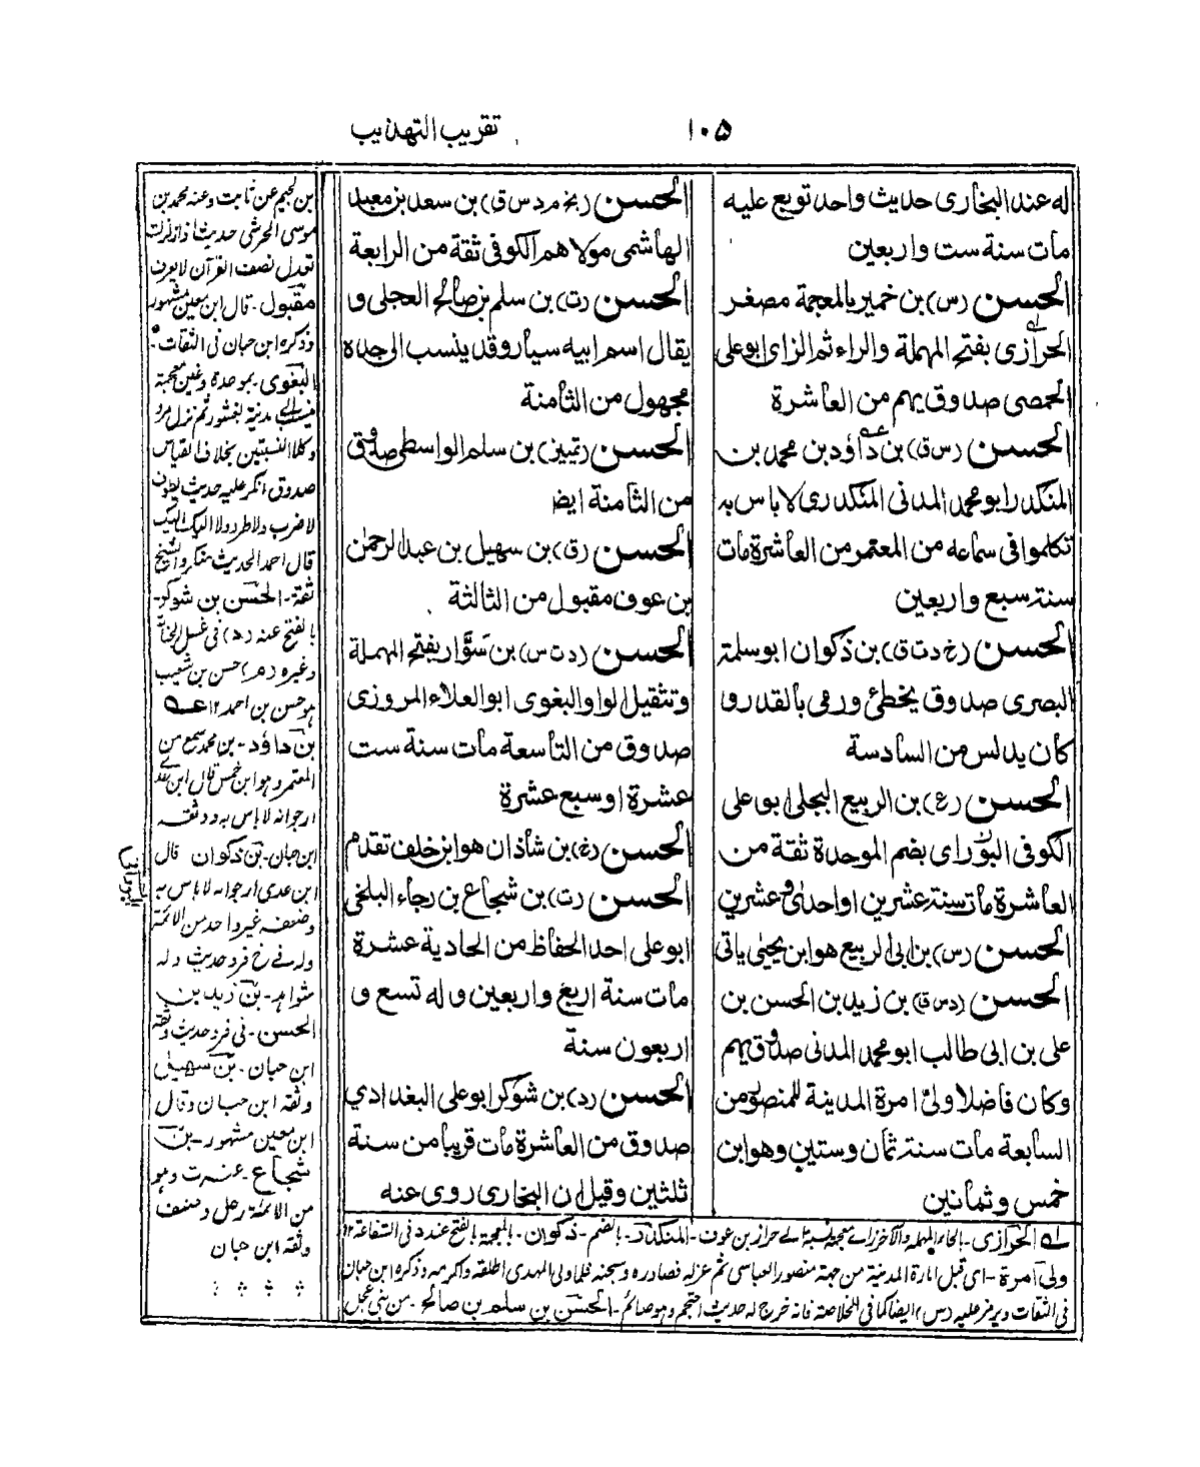 ١٠٥
تقریب التهذیب
له عند البخاری حدیث واحد توبع علیه
مات سنة ست واربعین
الحسن (س) بن خمیر بالمعجمة مصغر
الحرازی بفتح المهملة والراء ثم الزای ابو علی
الحمصی صدوق یهم من العاشرة
الحسن (س ق) بن داؤد بن محمد بن
المنکدر ابو محمد المدنی المنکدری لا باس به
تکلموا فی سماعه من المعتمر من العاشرة مات
سنة سبع واربعین
الحسن (خ د ت ق) بن ذکوان ابو سلمة
البصری صدوق یخطئ ورمی بالقدر و
کان یدلس من السادسة
الحسن (ع) بن الربیع البجلی ابو علی
الکوفی البورانی بضم الموحدة ثقة من
العاشرة مات سنة عشرین او احدی وعشرین
الحسن (س) بن ابی الربیع هو ابن یحیی یاتی
الحسن (د س ق) بن زید بن الحسن بن
علی بن ابی طالب ابو محمد المدنی صدوق یهم
وکان فاضلا ولی امرة المدینة للمنصور من
السابعة مات سنة ثمان وستین وهو ابن
خمس وثمانین
الحسن (بخ م د س ق) بن سعد بن معبد
الهاشمی مولاهم الکوفی ثقة من الرابعة
الحسن (ت) بن سلم بن صالح العجلی و
یقال اسم ابیه سیار وقد ینسب الی جده
مجهول من الثامنة
الحسن (تمییز) بن سلم الواسطی صدوق
من الثامنة ایضا
الحسن (ق) بن سهیل بن عبد الرحمن
بن عوف مقبول من الثالثة
الحسن (د ت س) بن سَوَّار بفتح المهملة
وتثقیل الواو البغوی ابو العلاء المروزی
صدوق من التاسعة مات سنة ست
عشرة او سبع عشرة
الحسن (غ) بن شاذان هو ابن خلف تقدم
الحسن (ت) بن شجاع بن رجاء البلخی
ابو علی احد الحفاظ من الحادیة عشرة
مات سنة اربع واربعین وله تسع و
اربعون سنة
الحسن (د) بن شوکر ابو علی البغدادی
صدوق من العاشرة مات قریبا من سنة
ثلثین وقیل ان البخاری روی عنه
بن لجیم عن ثابت وعنه محمد بن
موسی الحرشی حدیث اذا زلزلت
تعدل نصف القرآن لا یعرف
مقبول۔ قال ابن معین مشهور
وذکره ابن حبان فی الثقات۔
البغوی۔ بموحدة وغین معجمة
ینسب الی مدینة بغشور ثم نزل مرو
وکلا النسبتین بخلاف القیاس
صدوق۔ انکر علیه حدیث یطوف
لا ضرب ولا طرد ولا الیک الیک
قال احمد الحدیث منکر والشیخ
ثقة۔ الحسن بن شوکر۔
بالفتح عنه (د) فی غسل
وغیره حسن بن شعیب
هو حسن بن احمد ١٢
بن داؤد۔ بن محمد سمع من
المعتمر وهو ابن خمس قال ابن عدی
ارجو انه لا باس به ووثقه
ابن حبان۔ بن ذکوان قال
ابن عدی ارجو انه لا باس به
وضعفه غیر واحد من الائمة
وله فی خ فرد حدیث وله
شواهد۔ بن زید بن
الحسن۔ فی فرد حدیث وثقه
ابن حبان۔ بن سهیل
وثقه ابن حبان وقال
ابن معین مشهور۔ بن
شجاع۔ عنه ت وهو
من الائمة رحل وصنف
وثقه ابن حبان
الحرازی۔ بالحاء المهملة والآخر زای معجمة نسبة الی حراز بن عوف۔ المنکدر۔ بالضم۔ ذکوان۔ بالمعجمة بالفتح عند د فی الشفاعة ١٢
ولی امرة۔ ای قبل امارة المدینة من جهة منصور العباسی ثم عزله فصادره وسجنه فلما ولی المهدی اطلقه واکرمه وذکره ابن حبان
فی الثقات ویرمز علیه (س) ایضا کما فی الخلاصة فانه خرج له حدیث احتجم وهو صائم۔ الحسن بن سلم بن صالح۔ من بنی عجل